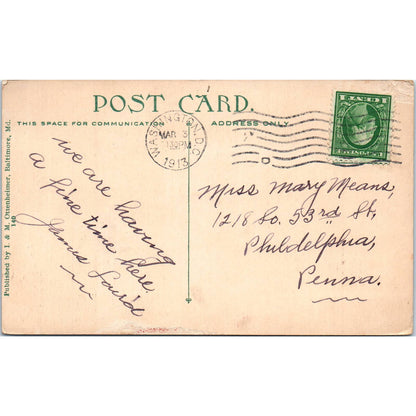 POST CARD.
THIS SPACE FOR COMMUNICATION
ADDRESS ONLY.
WASHINGTON, D.C.
MAR 3
PM
1913
we are having
a fine time here.
James
Miss Mary Means,
1218 So. 53rd St,
Phildelphia,
Penna.
Published by I. & M. Ottenheimer, Baltimore, Md.